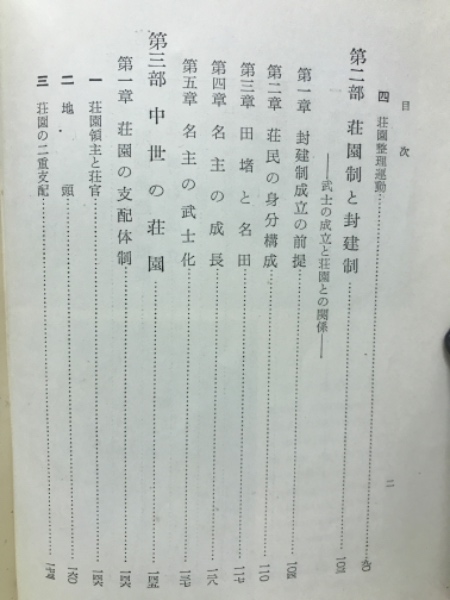 目次
二
四 荘園整理運動 九〇
第二部 荘園制と封建制 一〇三
――武士の成立と荘園との関係――
第一章 封建制成立の前提 一〇四
第二章 荘民の身分構成 一一〇
第三章 田堵と名田 一一七
第四章 名主の成長 一二八
第五章 名主の武士化 一三七
第三部 中世の荘園 一四五
第一章 荘園の支配体制 一四六
一 荘園領主と荘官 一四六
二 地頭 一六〇
三 荘園の二重支配 一七五